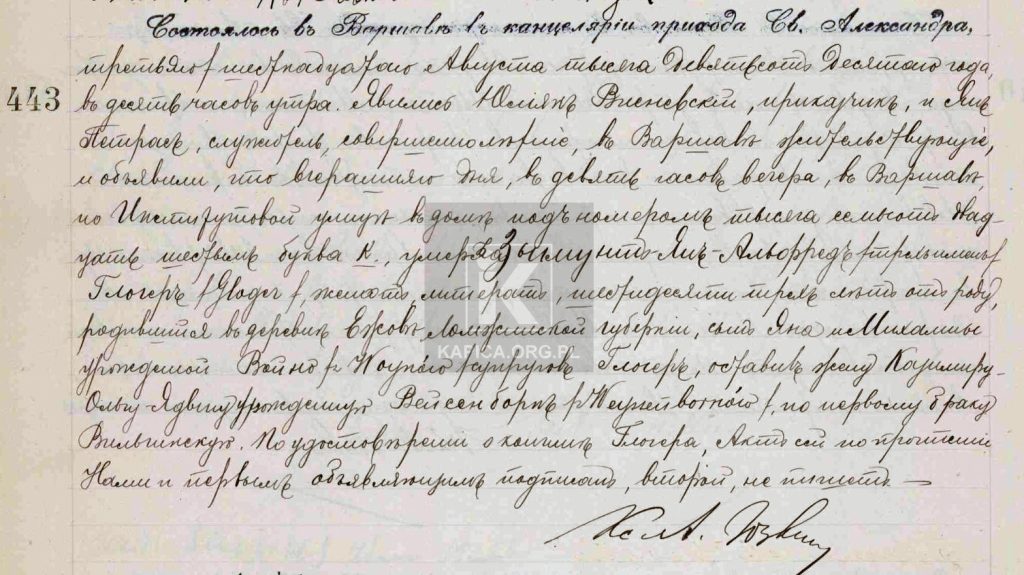 Состоялось въ Варшавѣ въ канцеляріи прихода Св. Александра,
третьяго / шестнадцатаго Августа тысяча девятьсотъ десятаго года,
443 въ десять часовъ утра. Явились Юліянъ Висневскій, приказчикъ, и Янъ
Петрасъ, служитель, совершеннолѣтніе, въ Варшавѣ жительствующіе,
и объявили, что вчерашняго дня, въ девять часовъ вечера, въ Варшавѣ,
по Институтовой улицѣ въ домѣ подъ номеромъ тысяча семьсотъ двад-
цать шестымъ буква К., умеръ Зыгмунтъ-Янъ-Альфредъ /трехъ именъ/
Глогеръ / Gloger /, женатъ, литератъ, шестидесяти трехъ лѣтъ отъ роду,
родившійся въ деревнѣ Ежовѣ, Ломжинской губерніи, сынъ Яна и Михалины
урожденной Войно / Woyno / супруговъ Глогеръ, оставивъ жену Казимиру-
Ольгу-Ядвигу урожденную Вейсенборнъ по первому браку
По удостовѣреніи о кончинѣ Глогера, Актъ сей по прочтеніи
Нами и первымъ объявляющимъ подписанъ, второй, не пишетъ. —
KAPICA.ORG.PL